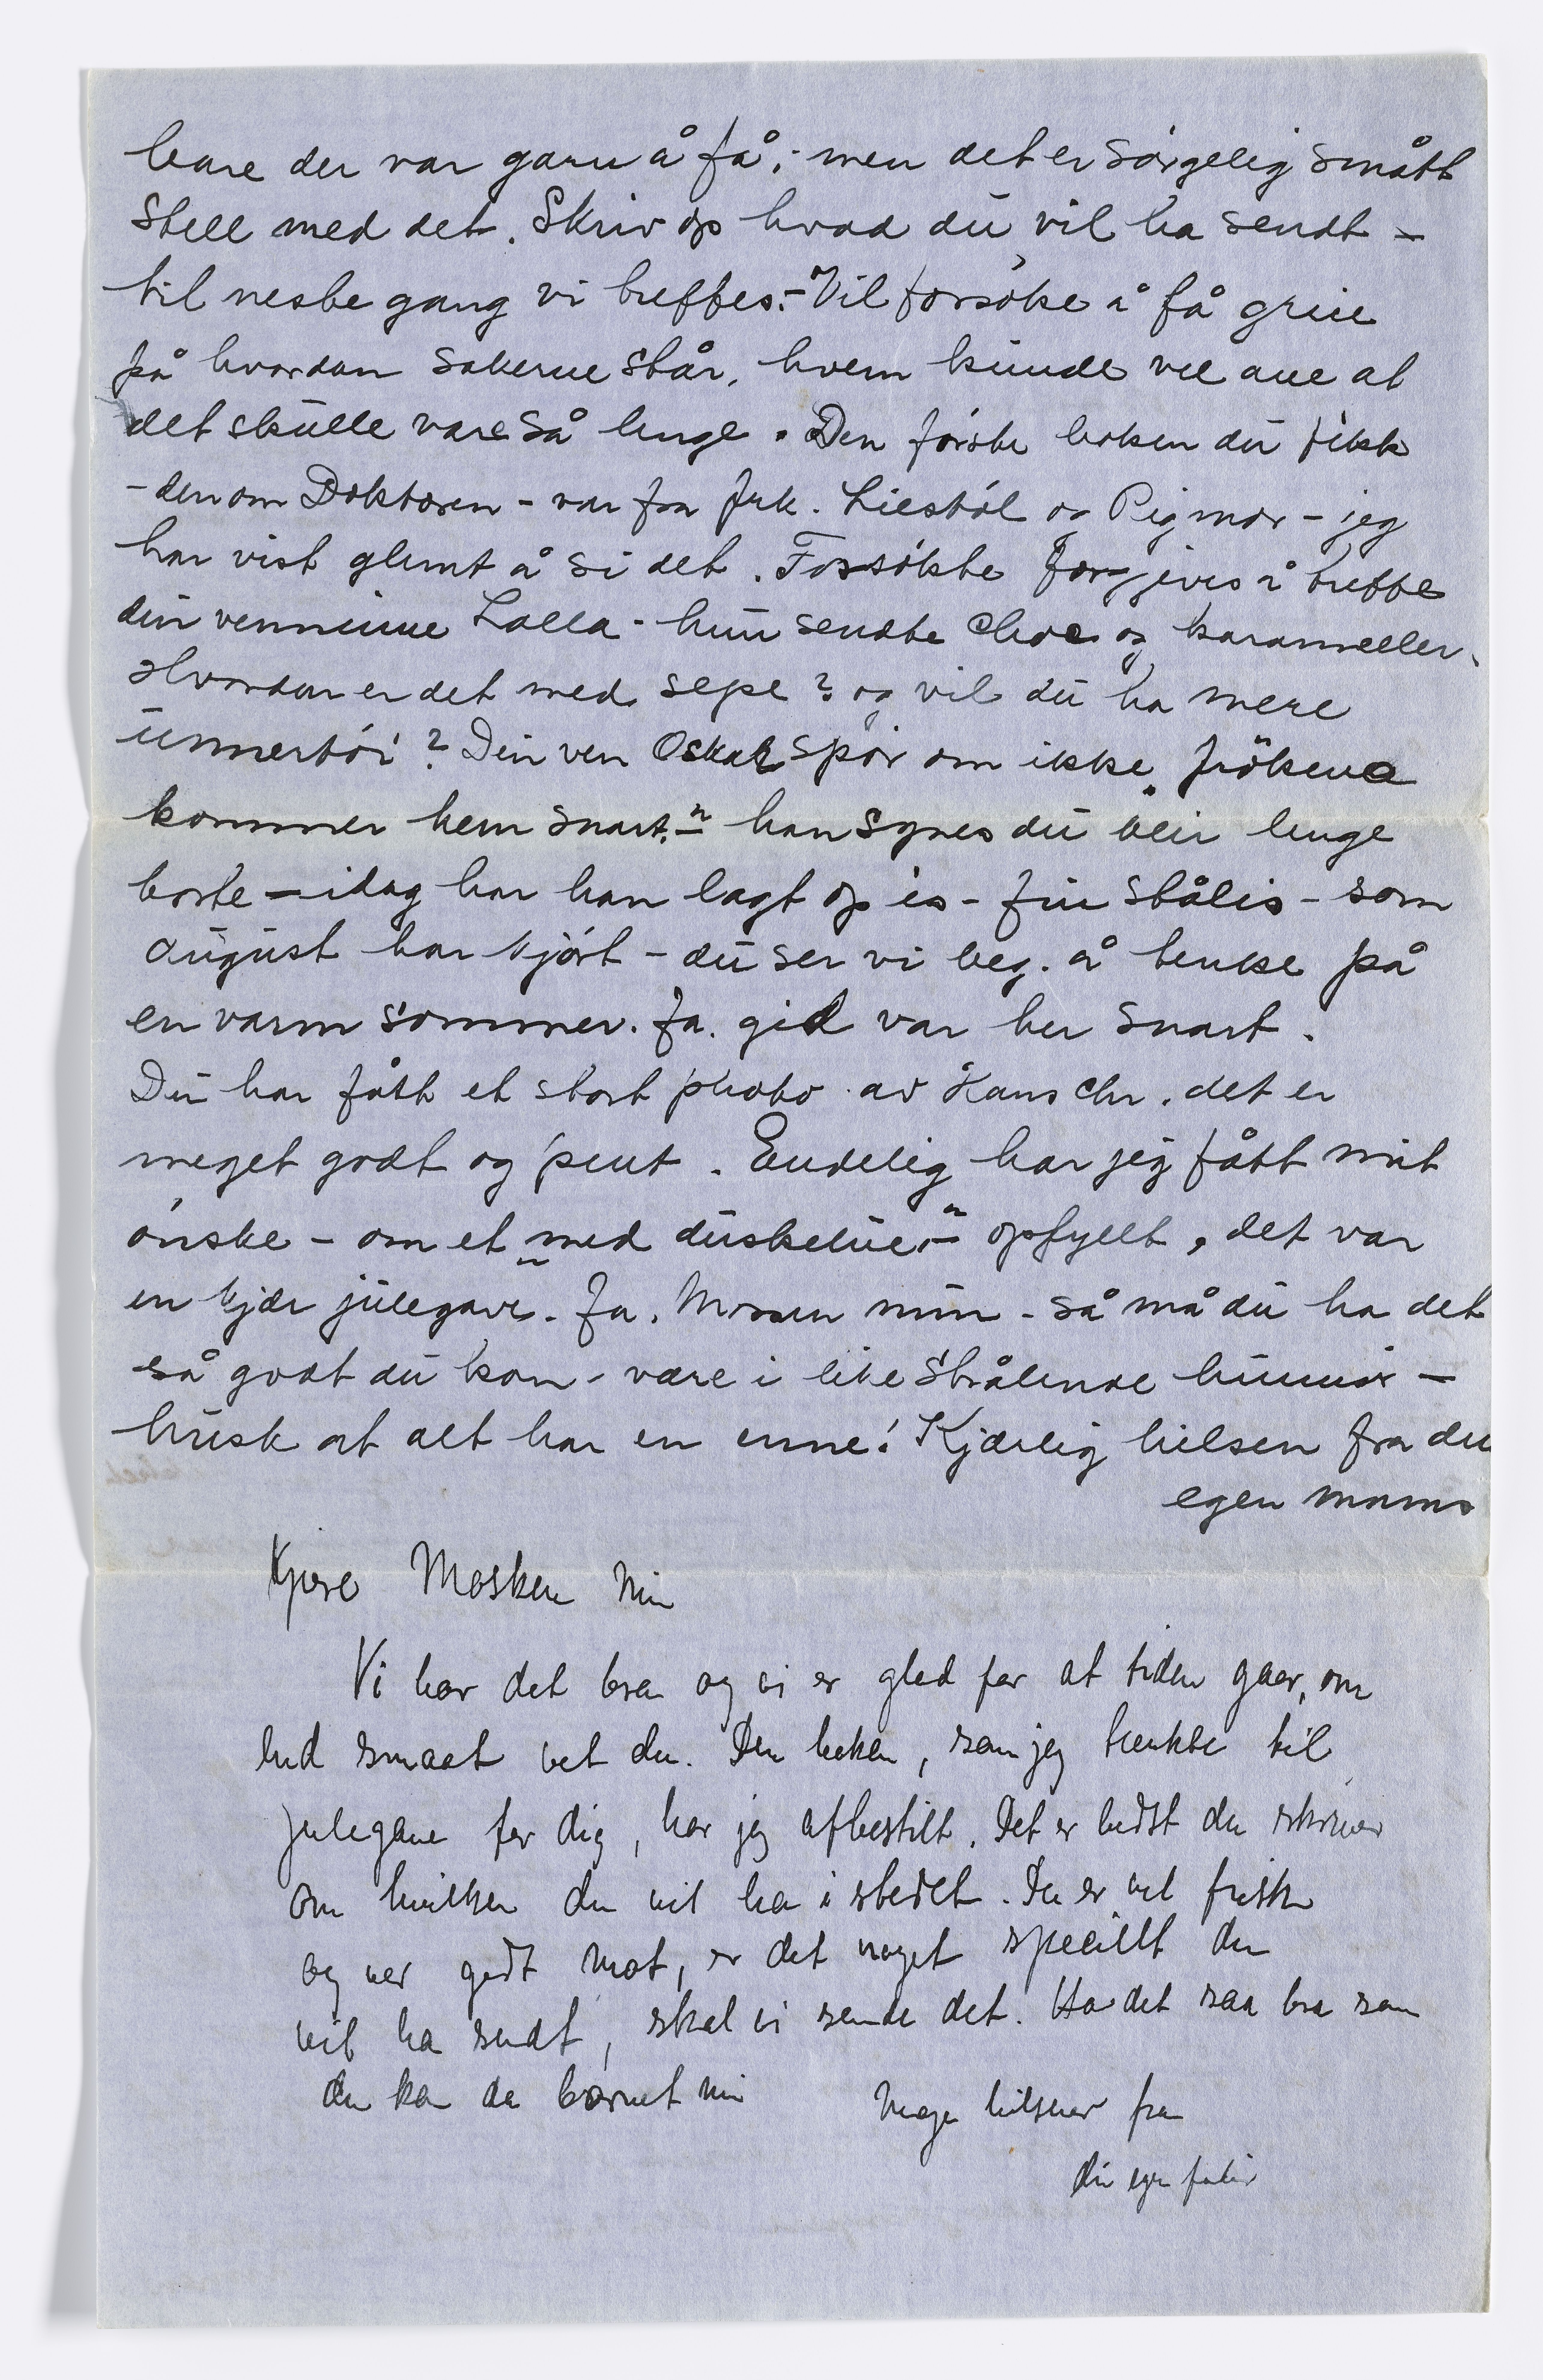 bare der var garn å få; men det er sørgelig smått
stell med det. Skriv op hvad du vil ha sendt –
til neste gang vi treffes. – Vil forsøke å få greie
på hvordan sakerne står, hvem kunde vel ane at
det skulle vare så lenge. Den første boken du fikk
– den om Doktoren – var fra frk. Liestøl og Rigmor – jeg
har vist glemt å si det. Forsøkte forgjeves å treffe
din venninne Lalla – hun sendte choc og karameller.
Hvordan er det med sepe? og vil du ha mere
unnertøi? Din ven Oskar spør om ikke „frökena
kommer hem snart." – han synes du blir lenge
borte – idag har han lagt op is – fin stålis – som
August har kjørt – du ser vi beg. å tenke på
en varm sommer. Ja. gid var her snart.
Du har fått et stort photo av Hans Chr. det er
meget godt og pent. Endelig har jeg fått mit
ønske – om et „med duskelue" – opfyllt, det var
en kjær julegave. Ja. Mossen min – så må du ha det
så godt du kan – være i like strålende humør –
husk at alt har en enne! Kjærlig hilsen fra din
egen mams
Kjære Mosken min
Vi har det bra og vi er glad for at tiden gaar, om
end smaat vet du. Den boken, som jeg tænkte til
julegave for dig, har jeg afbestilt. Det er bedst du skriver
om hvilken du vil ha i stedet. Du er vel frisk
og ved godt mot, er det noget specielt du
vil ha sendt, skal vi sende det. Ha det saa bra som
du kan da barnet min Mange hilsener fra
din egen fader